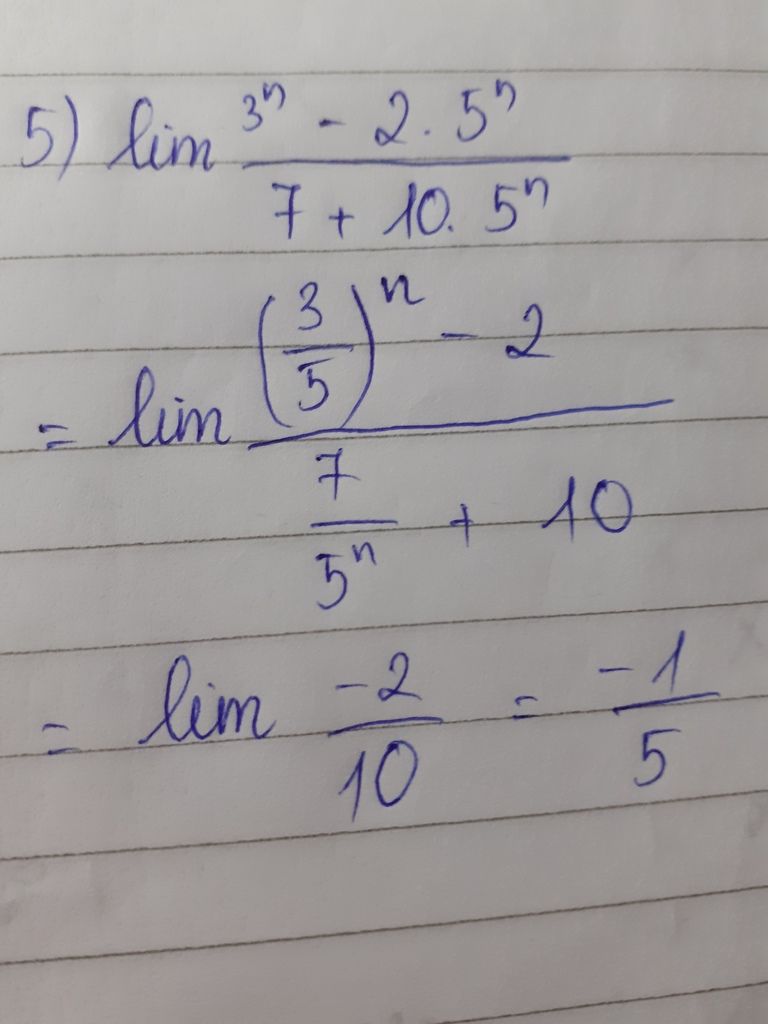 5) lim (3ⁿ - 2. 5ⁿ) / (7 + 10. 5ⁿ)
= lim ((3/5)ⁿ - 2) / (7/5ⁿ + 10)
= lim -2/10 = -1/5